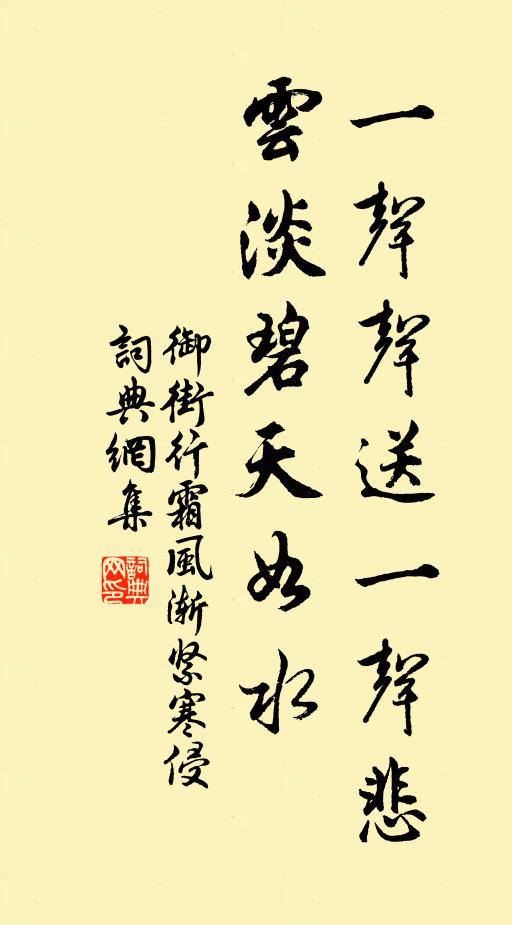 一聲聲送一聲悲
雲淡碧天如水
御街行霜風漸緊寒侵
詞典網集
詞典
网印